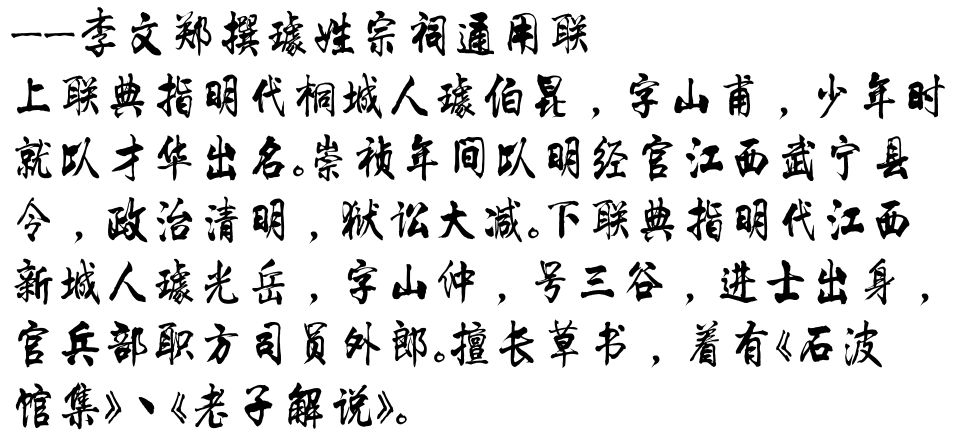 ——李文郑撰璩姓宗祠通用联
上联典指明代桐城人璩伯昆，字山甫，少年时
就以才华出名。崇祯年间以明经官江西武宁县
令，政治清明，狱讼大减。下联典指明代江西
新城人璩光岳，字山仲，号三谷，进士出身，
官兵部职方司员外郎。擅长草书，着有《石波
馆集》、《老子解说》。